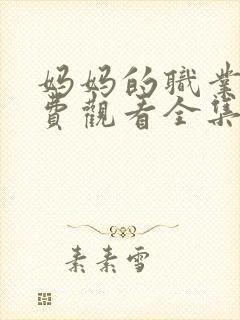 妈妈的職業
費觀看全集
素素雪